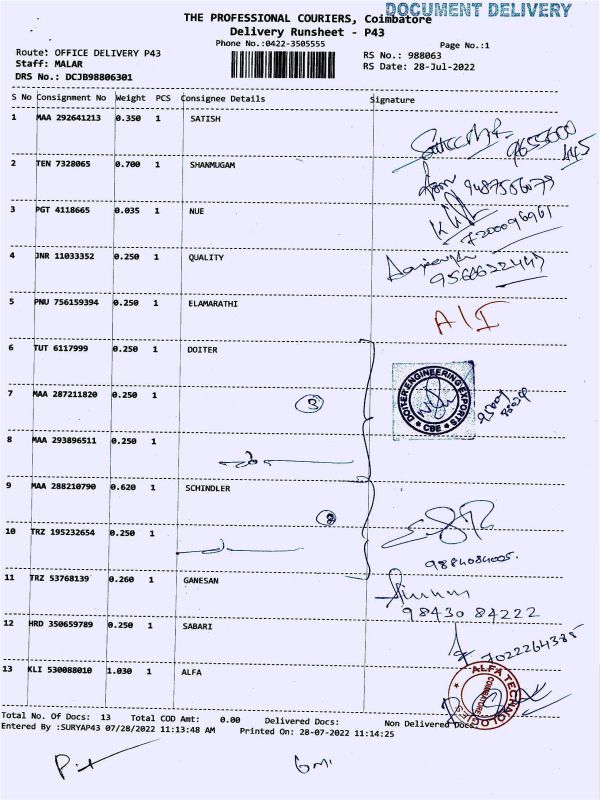 DOCUMENT DELIVERY
THE PROFESSIONAL COURIERS, Coimbatore
Delivery Runsheet - P43
Phone No.:0422-3505555
Page No.:1
Route: OFFICE DELIVERY P43
RS No.: 988063
Staff: MALAR
RS Date: 28-Jul-2022
DRS No.: DCJB98806301
S No Consignment No Weight PCS Consignee Details Signature
1 MAA 292641213 0.350 1 SATISH
9655600
445
2 TEN 7328065 0.700 1 SHANMUGAM
9487556079
3 PGT 4118665 0.035 1 NUE
7200096961
4 JNR 11033352 0.250 1 QUALITY
9566622447
5 PNU 756159394 0.250 1 ELAMARATHI
A/I
6 TUT 6117999 0.250 1 DOITER
DOITER ENGINEERING EXPORTS
* CBE *
7 MAA 287211820 0.250 1
3
8 MAA 293896511 0.250 1
-do-
9 MAA 288210790 0.620 1 SCHINDLER
2
10 TRZ 195232654 0.250 1
-do-
9884084005.
11 TRZ 53768139 0.260 1 GANESAN
98430 84222
12 HRD 350659789 0.250 1 SABARI
7022264385
13 KLI 530088010 1.030 1 ALFA
ALFA TECHNOLOGIES
COIMBATORE
Total No. Of Docs: 13 Total COD Amt: 0.00 Delivered Docs: Non Delivered Docs:
Entered By :SURYAP43 07/28/2022 11:13:48 AM Printed On: 28-07-2022 11:14:25